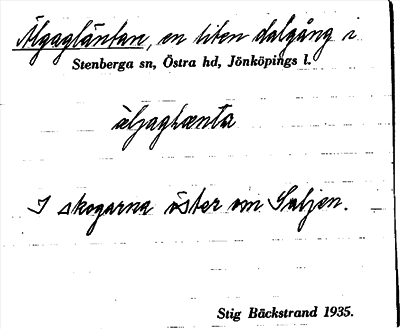 Älgagläntan, en liten dalgång i
Stenberga sn, Östra hd, Jönköpings l.
äljaglænta
I skogarna öster om Saljen.
Stig Bäckstrand 1935.